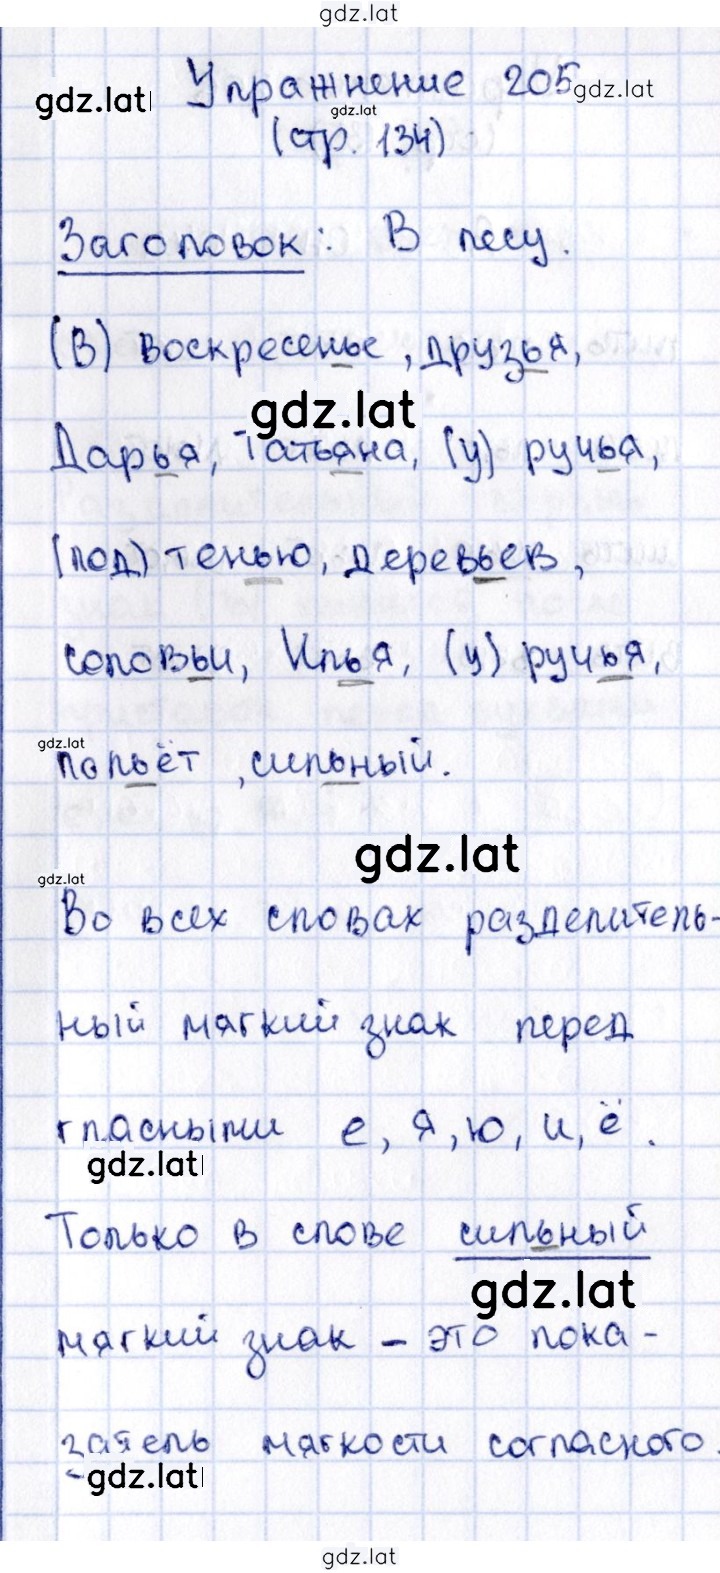 gdz.lat
gdz.lat Упражнение 205 gdz.lat
gdz.lat
(стр. 134)
Заголовок: В лесу.
(в) воскресенье, друзья,
gdz.lat
Дарья, Татьяна, (у) ручья,
(под) тенью, деревьев,
соловьи, Илья, (у) ручья,
gdz.lat
польёт, сильный.
gdz.lat
gdz.lat
Во всех словах разделитель-
ный мягкий знак перед
гласными е, я, ю, и, ё.
gdz.lat
Только в слове сильный
gdz.lat
мягкий знак – это пока-
затель мягкости согласного.
gdz.lat
gdz.lat